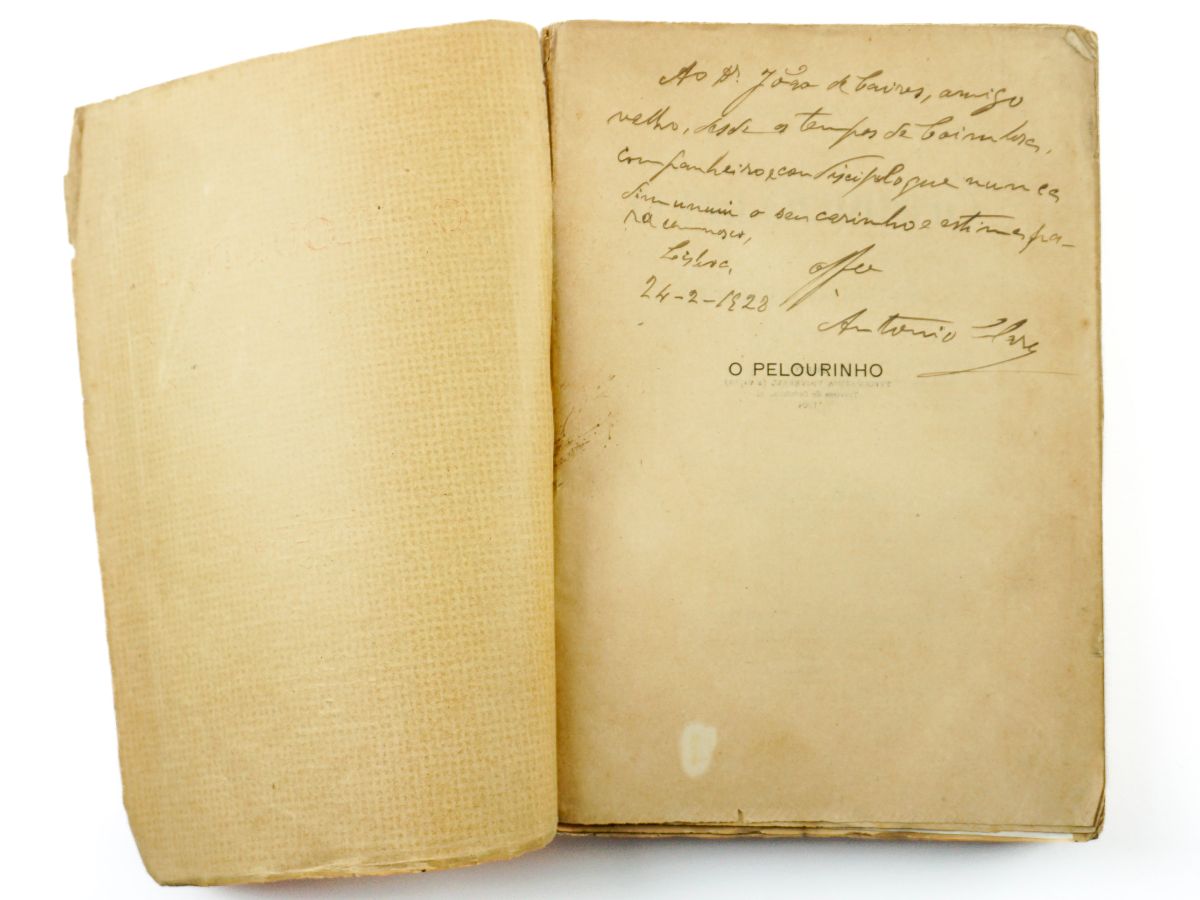 Ao Dr. João de Caires, amigo
velho, desde os tempos de Coimbra,
companheiro e condiscipulo que nunca
diminuiu o seu carinho e estima pa-
ra comnosco,
Lisboa,
offce
24-2-1928
Antonio
O PELOURINHO